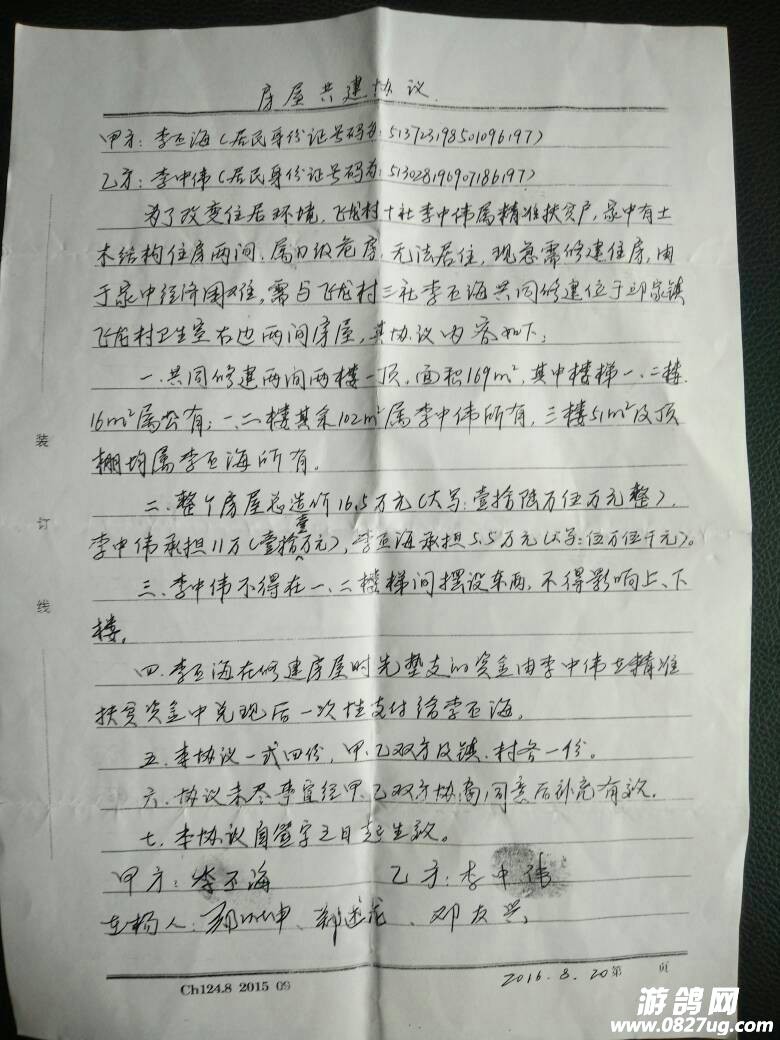 房屋共建协议
甲方：李丕海（居民身份证号码为：513723198501096197）
乙方：李中伟（居民身份证号码为：513028196907186197）
为了改变住居环境，飞龙村十社李中伟属精准扶贫户，家中有土
木结构住房两间，属D级危房，无法居住，现急需修建住房，由
于家中经济困难，需与飞龙村三社李丕海共同修建位于邱家镇
飞龙村卫生室右边两间房屋，其协议内容如下：
一、共同修建两间两楼一顶，面积169m²，其中楼梯一、二楼
16m²属公有；一、二楼其余102m²属李中伟所有，三楼51m²及顶
棚均属李丕海所有。
二、整个房屋总造价16.5万元（大写：壹拾陆万伍万元整），
李中伟承担11万（壹拾壹万元），李丕海承担5.5万元（大写：伍万伍千元）。
三、李中伟不得在一、二楼梯间摆设东西，不得影响上、下
楼。
四、李丕海在修建房屋时先垫支的资金由李中伟在精准
扶贫资金中兑现后一次性支付给李丕海。
五、本协议一式四份，甲、乙双方及镇、村各一份。
六、协议未尽事宜经甲、乙双方协商，同意后补充有效。
七、本协议自签字之日起生效。
甲方：李丕海 乙方：李中伟
在场人： 邓友兴
2016.8.20 第 页
Ch124.8 2015 09
装 订 线
游鸽网
www.0827ug.com